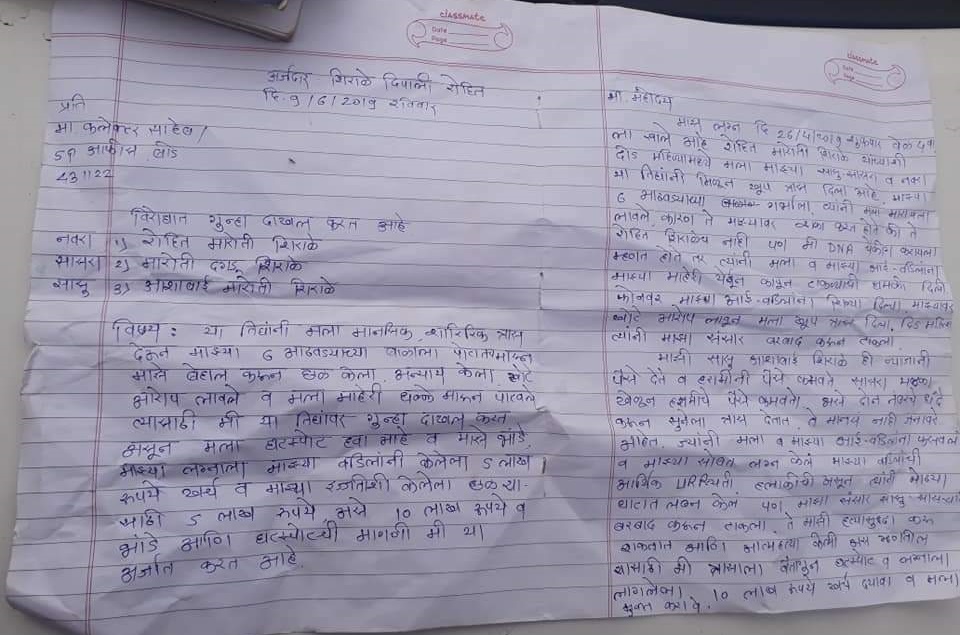 classmate
Date
Page
अर्जदार - शिराळे दिपाली रोहित
दि. 9/6/2019 रविवार
प्रति
मा कलेक्टर साहेब/
SP ऑफीस बीड
431122
विरोधात गुन्हा दाखल करत आहे
नवरा 1) रोहित मारोती शिराळे
सासरा 2) मारोती दगडू शिराळे
सासु 3) आशाबाई मारोती शिराळे
विषय : या तिघांनी मला मानसिक, शारिरिक त्रास
देऊन माझ्या 6 आठवड्याच्या बाळाला पोटात मारून
माझे बेहाल करून छळ केला. अन्याय केला. खोटे
आरोप लावले व मला माहेरी धक्के मारून पाठवले
त्यासाठी मी या तिघांवर गुन्हा दाखल करत
असून मला घटस्पोट हवा आहे व माझे भांडे,
माझ्या लग्नाला माझ्या वडिलांनी केलेला 5 लाख
रुपये खर्च व माझ्या इज्जतीशी केलेला छळ या-
साठी 5 लाख रुपये असे 10 लाख रुपये व
भांडे आणि घटस्पोटची मागणी मी या
अर्जात करत आहे.
classmate
Date
Page
मा. महोदय
माझे लग्न दि 26/4/2019 शुक्रवार वेळ
ला झाले आहे रोहित मारोती शिराळे यांच्याशी
दीड महिन्यामध्ये मला माझ्या सासु-सासरा व नवरा
या तिघांनी मिळून खुप त्रास दिला आहे. माझ्या
6 आठवड्याच्या गर्भाला त्यांनी मला मारायला
लावले. कारण ते माझ्यावर शंका करत होते की ते
रोहित शिराळेचं नाही पण मी DNA चेकींग करायला
म्हणत होते तर त्यांनी मला व माझ्या आई-वडिलांना
माझ्या माहेरी येवून कापून टाकण्याची धमकी दिली
फोनवर माझ्या आई-वडिलांना शिव्या दिल्या. माझ्यावर
खोटे आरोप लावून मला खुप त्रास दिला. दिड महिना
त्यांनी माझा संसार बरबाद करून टाकला.
माझी सासु आशाबाई शिराळे ही व्याजानी
पैसे देते व हरामीनी पैसे कमवते सासरा मटका
खेळून हरामीचे पैसे कमवतो. असे दोन नंबरचे धंदे
करून सुनेला त्रास देतात. ते माणसं नाही जनावरे
आहेत. ज्यांनी मला व माझ्या आई-वडिलांना फसवलं
व माझ्या सोबत लग्न केलं माझ्या वडिलांची
आर्थिक परिस्थिती हलाकीची असून त्यांनी माझ्या
थाटात लग्न केलं पण माझा संसार सासु-सासऱ्यानं
बरबाद करून टाकला. ते माझी हत्यासुद्धा करू
शकतात आणि आत्महत्या केली असं म्हणतील
यासाठी मी त्रासाला वैतागून घटस्पोट व लग्नाला
लागलेला 10 लाख रुपये खर्च दयावा व मला
मुक्त करावे.